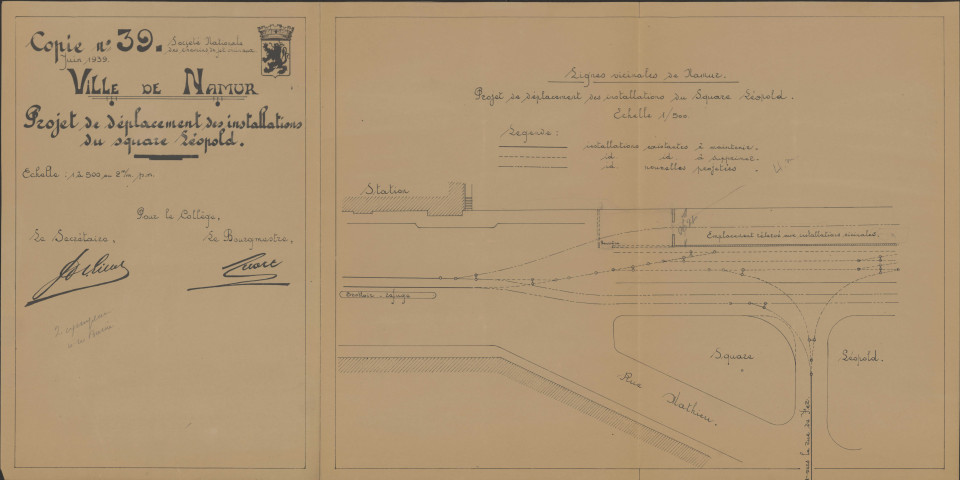 Copie n° 39.
Juin 1939.
Société Nationale
des chemins de fer vicinaux
VILLE DE NAMUR
Projet de déplacement des installations
du square Léopold.
Echelle : 1 à 500 ou 2 m/m p.m.
Pour le Collège,
Le Secrétaire,
Le Bourgmestre,
Lignes vicinales de Namur.
Projet de déplacement des installations du Square Léopold.
Echelle 1/500.
Légende :
installations existantes à maintenir.
id id. à supprimer.
id nouvelles projetées.
Station
Emplacement réservé aux installations vicinales.
Trottoir - refuge
Square
Léopold.
Rue Mathieu.
vers la rue de Fer